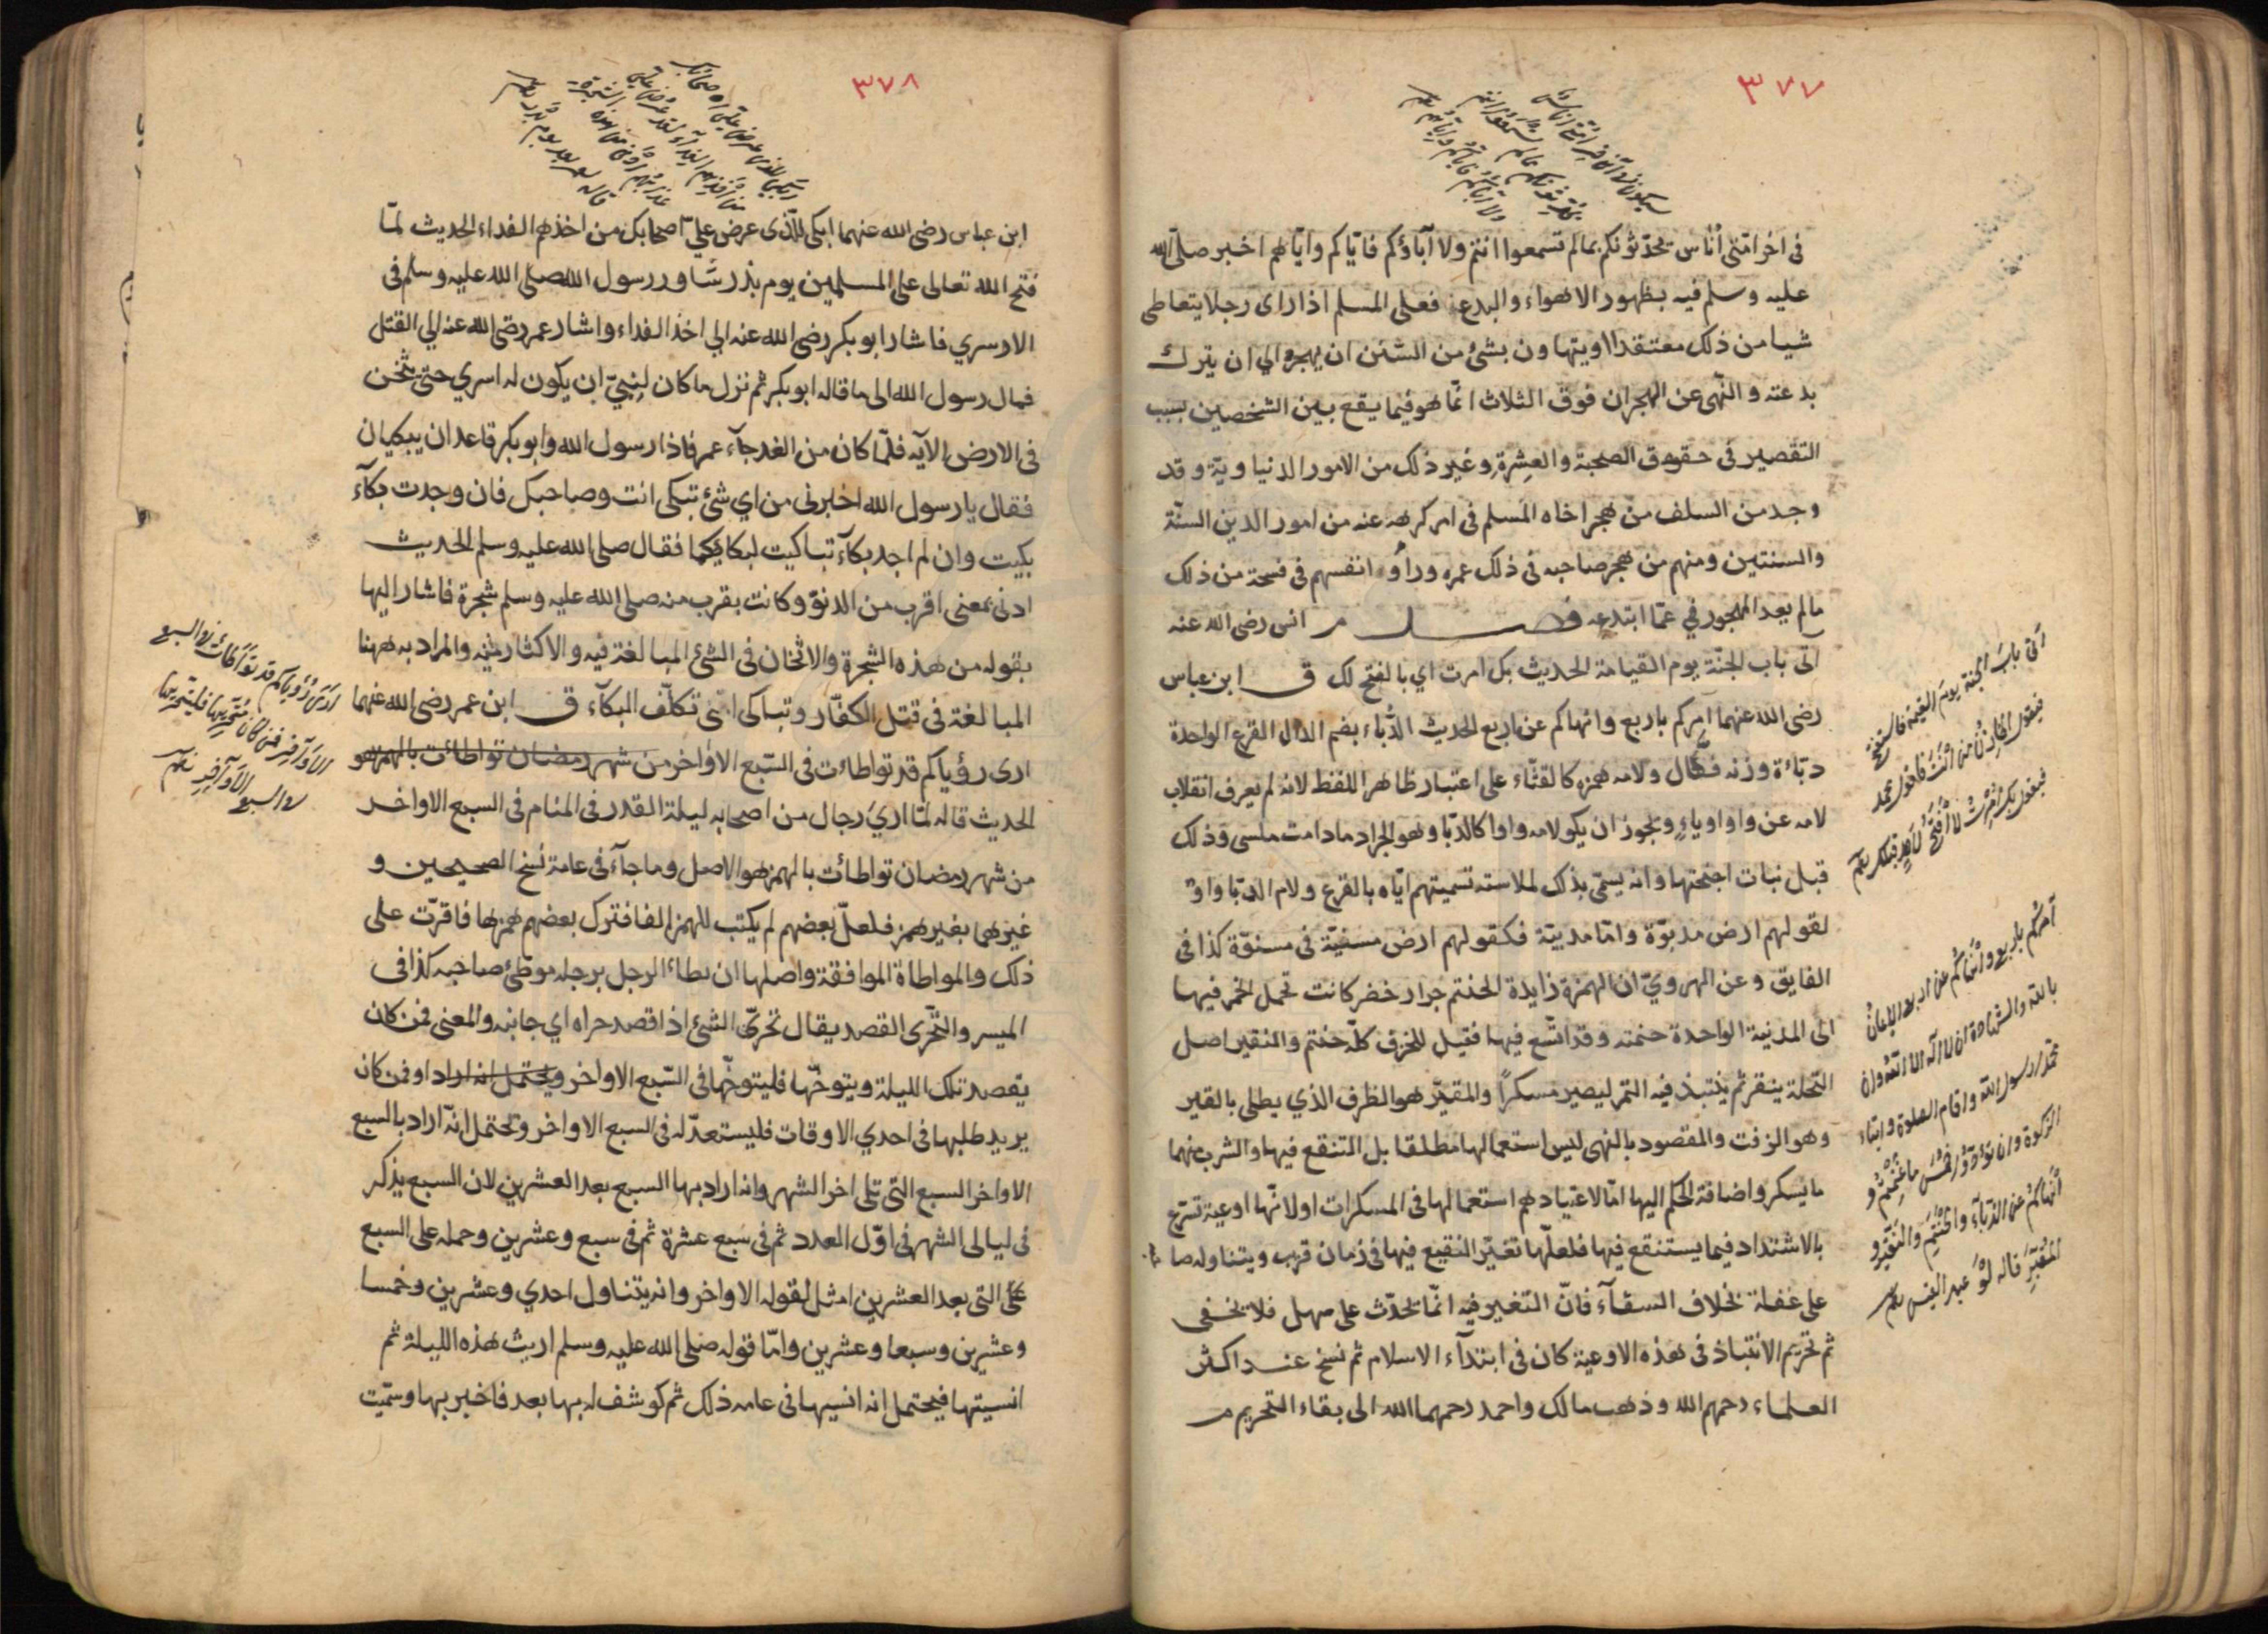 ٣٧٧
سيكون فى آخر امتى اناس
يحدثونكم بما لم تسمعوا انتم
ولا آباؤكم فاياكم واياهم
فى اخر امّتى أناس يحدّثونكم بما لم تسمعوا انتم ولا آباؤكم فايّاكم وايّاهم اخبر صلّى الله
عليه وسلم فيه بظهور الاهواء والبدع فعلى المسلم اذا راى رجلا يتعاطى
شيا من ذلك معتقدا او يتهاون بشئ من السّنن ان يهجره الي ان يترك
بدعته والنّهى عن الهجران فوق الثلاث انّما هو فيما يقع بين الشخصين بسبب
التقصير فى حقوق الصحبة والعِشرة وغير ذلك من الامور الدنياويّة وقد
وجد من السلف من هجر اخاه المسلم فى امر كرهه عنه من امور الدين السنّة
والسنتين ومنهم من هجر صاحبه فى ذلك عمره ورأوا انفسهم فى فسحة من ذلك
مالم يعد المهجور في عمّا ابتدعه فصل م انس رضى الله عنه
آتى باب الجنّة يوم القيامة الحديث بك امرت اي بالفتح لك ق ابن عباس
رضى الله عنهما آمركم باربع وانهاكم عن اربع الحديث الدّباء بضم الدال القرع الواحدة
دبّاءة وزنه فعّال ولامه همزة كالقثّاء على اعتبار ظاهر اللفظ لانه لم يعرف انقلاب
لامه عن واو او ياءٍ ويجوز ان يكو لامه واوا كالدّبا وهو الجراد مادامت ملسى وذلك
قبل نبات اجنحتها وانه يسمّى بذلك لملاسته تسميتهم ايّاه بالقرع ولام الدّبا واوٌ
لقولهم ارض مدبوّة وامّا مدبيّة فكقولهم ارض مسنيّة فى مسنوّة كذا فى
الفايق وعن الهرويّ ان الهمزة زايدة الحنتم جرار خضر كانت تحمل الخمر فيها
الى المدينة الواحدة حنتمه وقد اتّسع فيها فقيل للخزف كلّه حنتم والنقير اصل
النّخلة ينقر ثم ينتبذ فيه التمر ليصير مسكرًا والمقيّر هو الظرف الذي يطلى بالقير
وهو الزفت والمقصود بالنهى ليس استعمالها مطلقا بل التنقع فيها والشرب منهما
ما يسكر واضافة الحكم اليها امّا لاعتيادهم استعمالها فى المسكرات او لانّها اوعية تسرع
بالاشتداد فيما يستنقع فيها فلعلّها تغيّر النقيع فيها فى زمان قرب ويتناوله صا حبه
على غفلة بخلاف السقآء فانّ التغير فيه انّما يحدّث على مهل فلا يخفى
ثم تحريم الانتباذ فى هذه الاوعية كان فى ابتدآء الاسلام ثم نسخ عند اكثر
العلماء رحمهم الله وذهب مالك واحمد رحمهما الله الى بقاء التحريم م
آتى باب الجنة يوم القيمة فاستفتح
فيقول الخازن من انت فاقول محمد
فيقول بك امرت لا افتح لاحد قبلك
آمركم باربع وانهاكم عن اربع الايمان
بالله والشهادة ان لا اله الا الله وان
محمدا رسول الله واقام الصلوة وايتاء
الزكوة وان تؤدوا خمس ما غنمتم و
انهاكم عن الدباء والحنتم والنقير و
المقير قاله لوفد عبد القيس
٣٧٨
ابكى للذى عرض على اصحابك
من اخذهم الفداء لقد عرض على
عذابهم ادنى من هذه الشجرة
قاله لعمر بعد يوم بدر
ابن عباس رضى الله عنهما ابكى للّذى عرض عليّ اصحابك من اخذهم الفداء الحديث لمّا
فتح الله تعالى على المسلمين يوم بذر شَاور رسول الله صلى الله عليه وسلم فى
الاسري فاشار ابو بكر رضى الله عنه الي اخذ الفداء واشار عمر رضى الله عنه الي القتل
فمال رسول الله الى ما قاله ابو بكر ثم نزل ما كان لِنبيّ ان يكون له اسري حتى يثخن
فى الارض الآيه فلمّا كان من الغد جآء عمر فاذا رسول الله وابو بكر قاعدان يبكيان
فقال يا رسول الله اخبرنى من اي شئ تبكى انت وصاحبك فان وجدت بكآء
بكيت وان لم اجد بكآء تباكيت لبكايكما فقال صلى الله عليه وسلم الحديث
ادنى بمعنى اقرب من الدنوّ وكانت بقرب منه صلى الله عليه وسلم شجرة فاشار اليها
بقوله من هذه الشجرة والاثخان فى الشئ المبالغة فيه والاكثار منه والمراد به ههنا
المبالغة فى قتل الكفّار وتباكى اى تكلّف البكآء ق ابن عمر رضى الله عنهما
ارى رؤياكم قد تواطاءت فى السّبع الاواخر من شهر رمضان تواطائت بالهمز هو
الحديث قاله لمّا اريَ رجال من اصحابه ليلة القدر فى المنام فى السبع الاواخر
من شهر رمضان تواطائت بالهمز هو الاصل وما جآء فى عامة نُسخ الصحيحين و
غيرهما بغير همز فلعلّ بعضهم لم يكتب للهمز الفا فترك بعضهم همزها فاقرّت على
ذلك والمواطاة الموافقة واصلها ان يطاء الرجل برجله موطئ صاحبه كذا فى
الميسر والتّحرى القصد يقال تحرّى الشئ اذا قصد حراه اي جانبه والمعنى فمن كان
يقصد تلك الليلة ويتوخّها فليتوخّها فى السّبع الاواخر ويحتمل انه اراد او فمن كان
يريد طلبها فى احدي الاوقات فليستعدّ له فى السبع الاواخر وتحتمل انّه اراد بالسبع
الاواخر السبع التى تلى اخر الشهر وانه اراد بها السبع بعد العشرين لان السبع يذكر
فى ليالى الشهر فى اوّل العدد ثم فى سَبع عشرة ثم فى سبع وعشرين وحمله على السبع
على التى بعد العشرين امثل لقوله الاواخر وانه يتناول احدي وعشرين وخمسا
وعشرين وسبعا وعشرين وامّا قوله صلى الله عليه وسلم اريت هذه الليلة ثم
انسيتها فيحتمل انه انسيها فى عامه ذلك ثم كوشف له بها بعد فاخبر بها وسمّيت
ارى رؤياكم قد تواطأت فى السبع
الاواخر فمن كان متحريها فليتحرها
فى السبع الاواخر